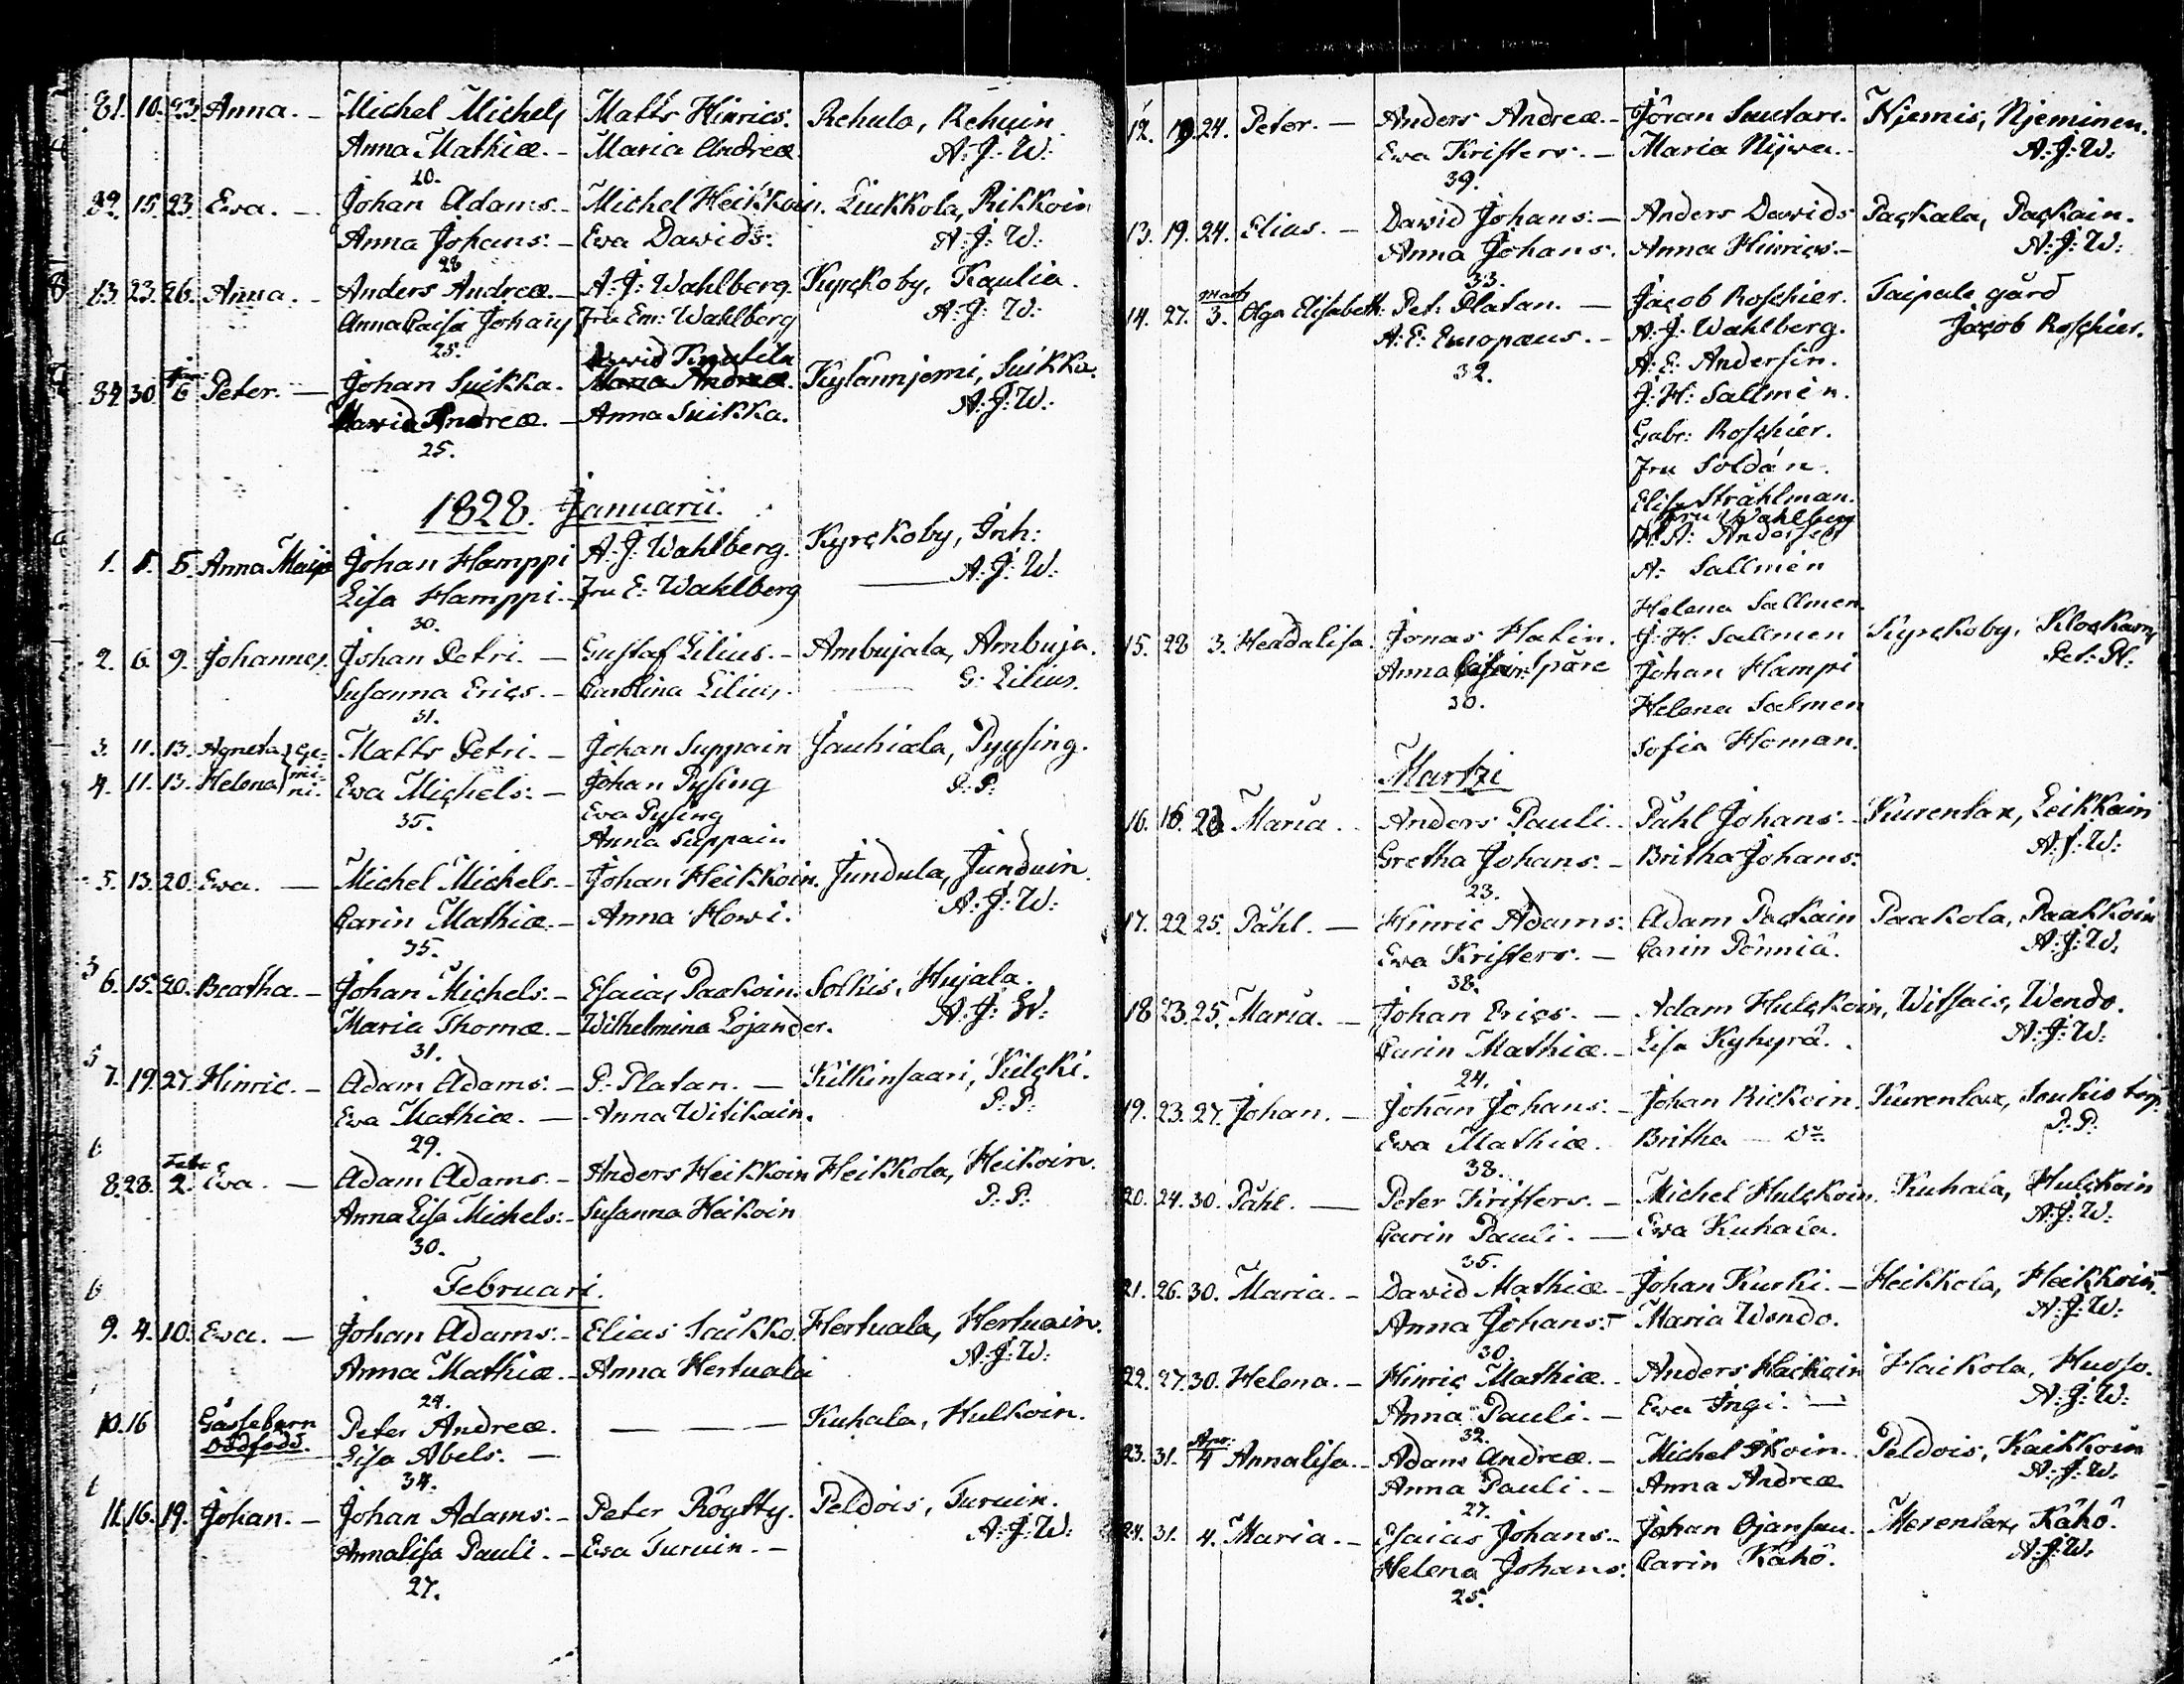 81. 10. 23. Anna. - Michel Michels Matts Hinrics. Rehula, Rehuin
Anna Mathiæ. - Maria Andreæ A: J: W:
20.
82. 15. 23. Eva. - Johan Adams. - Michel Heikkoin. Liukkola, Rikkoin
Anna Johans: - Eva Davids: A: J: W:
28
83. 23. 26. Anna. - Anders Andreæ. - A: J: Wahlberg. Kyrckoby, Kaulia.
Anna Caisa Johans Fru Em: Wahlberg A: J: W:
25. David
84. 30. 6 Peter. - Johan Suikka. Maria Andreæ. Kylänniemi, Suikka.
Andreæ. - Anna Suikka. A: J: W:
25.
1828. Januarii.
1. 1. 5. Anna Maija Johan Hamppi A: J: Wahlberg. Kyrckoby, Inh:
Lisa Hamppi. - Fru E: Wahlberg A: J: W:
30.
2. 6. 9. Johannes. Johan Petri. - Gustaf Lilius. - Ambujala, Ambuja.
Susanna Erics. - Carolina Lilius. G: Lilius.
31.
3. 11. 13. Agneta } Ge- Matts Petri. - Johan Suppain Jauhiala, Pyysing.
4. 11. 13. Helena } mi- ni. Eva Michels: - Johan Pysing P: P:
35. Eva Pysing
Anna Suppain.
5. 13. 20. Eva. - Michel Michels. - Johan Heikkoin. Jundula, Junduin.
Carin Mathiæ. - Anna Howi. A: J: W:
35.
6. 15. 20. Beatha. - Johan Michels: - Esaias Paakoin. Solkis, Hujala.
Maria Thomæ. - Wilhelmina Lojander. A: J: W:
31.
7. 19. 27. Hinric. - Adam Adams: - P: Platan. - Kilkinsaari, Kilcki.
Eva Mathiæ. - Anna Witikain. P: P:
29.
8. 28. Febr: 2. Eva. - Adam Adams. - Anders Heikkoin Heikkola, Heikoin.
Anna Lisa Michels: - Susanna Heikoin P: P:
30.
Februari.
9. 4. 10. Eva. - Johan Adams: - Elias Saukko. Hertuala, Hertuain.
Anna Mathiæ. - Anna Hertuala A: J: W:
24.
10. 16 Gåssebarn Peter Andreæ. - - Kuhala, Hulkoin.
Dödfödd. Lisa Abels: -
34.
11. 16. 19. Johan. - Johan Adams: - Peter Röytty. Peldois, Turuin.
Annalisa Pauli. - Eva Turuin. - A: J: W:
27.
12. 19. 24. Peter. - Anders Andreæ. - Jöran Suutari. Njemis, Njeminen.
Eva Kristers. - Maria Nijwa. - A: J: W:
39.
13. 19. 24. Elias. - David Johans: - Anders Davids Packala, Packain.
Anna Johans. Anna Hinrics. - A: J: W:
33.
14. 27. Marts 3. Olga Elisabeth: Pet: Platan. - Jacob Roschier. Taipale gård
A: E: Europæus. - A: J: Wahlberg. Jacob Roschier.
32. A: E: Andersin.
J: H: Sallmén.
Gabr: Roschier.
Fru Soldán.
Elise Stråhlman.
Fru Wahlberg
A: Sallmén
Helena Sallmen.
15. 28 3. Hedda Lisa. Jonas Hatin. J: H: Sallmen Kyrckoby, Klockars
Anna Johan Hampi Pet: Pl:
30. Helena Salmen
Sofia Homan.
Martzi
16. 16. 23 Maria. - Anders Pauli. - Påhl Johans: - Kurentax, Leikkain
Gretha Johans: - Britha Johans: A: J: W:
23.
17. 22. 25. Påhl. - Hinric Adams: Adam Packain Paakola, Paakkoin
Eva Kristers. - Carin Pönniä. A: J: W.
38.
18. 23. 25. Maria. - Johan Erics. - Adam Hulckoin, Witsais, Wendo.
Carin Mathiæ. - Lisa Kyhyrä. A: J: W:
24.
19. 23. 27. Johan. - Johan Johans: - Johan Rickoin. Kurentax, Soukis torp.
Eva Mathiæ. Britha - Do P: P:
38.
20. 24. 30. Påhl. - Peter Kristers. - Michel Hulckoin. Kuhala, Hulckoin
Carin Pauli. - Eva Kuhala. A: J: W:
35.
21. 26. 30. Maria. - David Mathiæ - Johan Kurki. - Heikkola, Heikkoin.
Anna Johans: - Maria Wendo. A: J: W:
30.
22. 27. 30. Helena. - Hinric Mathiæ. - Anders Haikoin Haikola, Huoso.
Anna Pauli. - Eva Ingi. - A: J: W:
32.
23. 31. Apr: 4 Annalisa. - Adam Andreæ. - Michel Ikoin. Peldois, Kaikkoin
Anna Pauli. - Anna Andreæ A: J: W.
27.
24. 31. 4. Maria. - Esaias Johans: - Johan Ojansuu. Merentax, Kähö.
Helena Johans: Carin Kähö. A: J: W.
25.